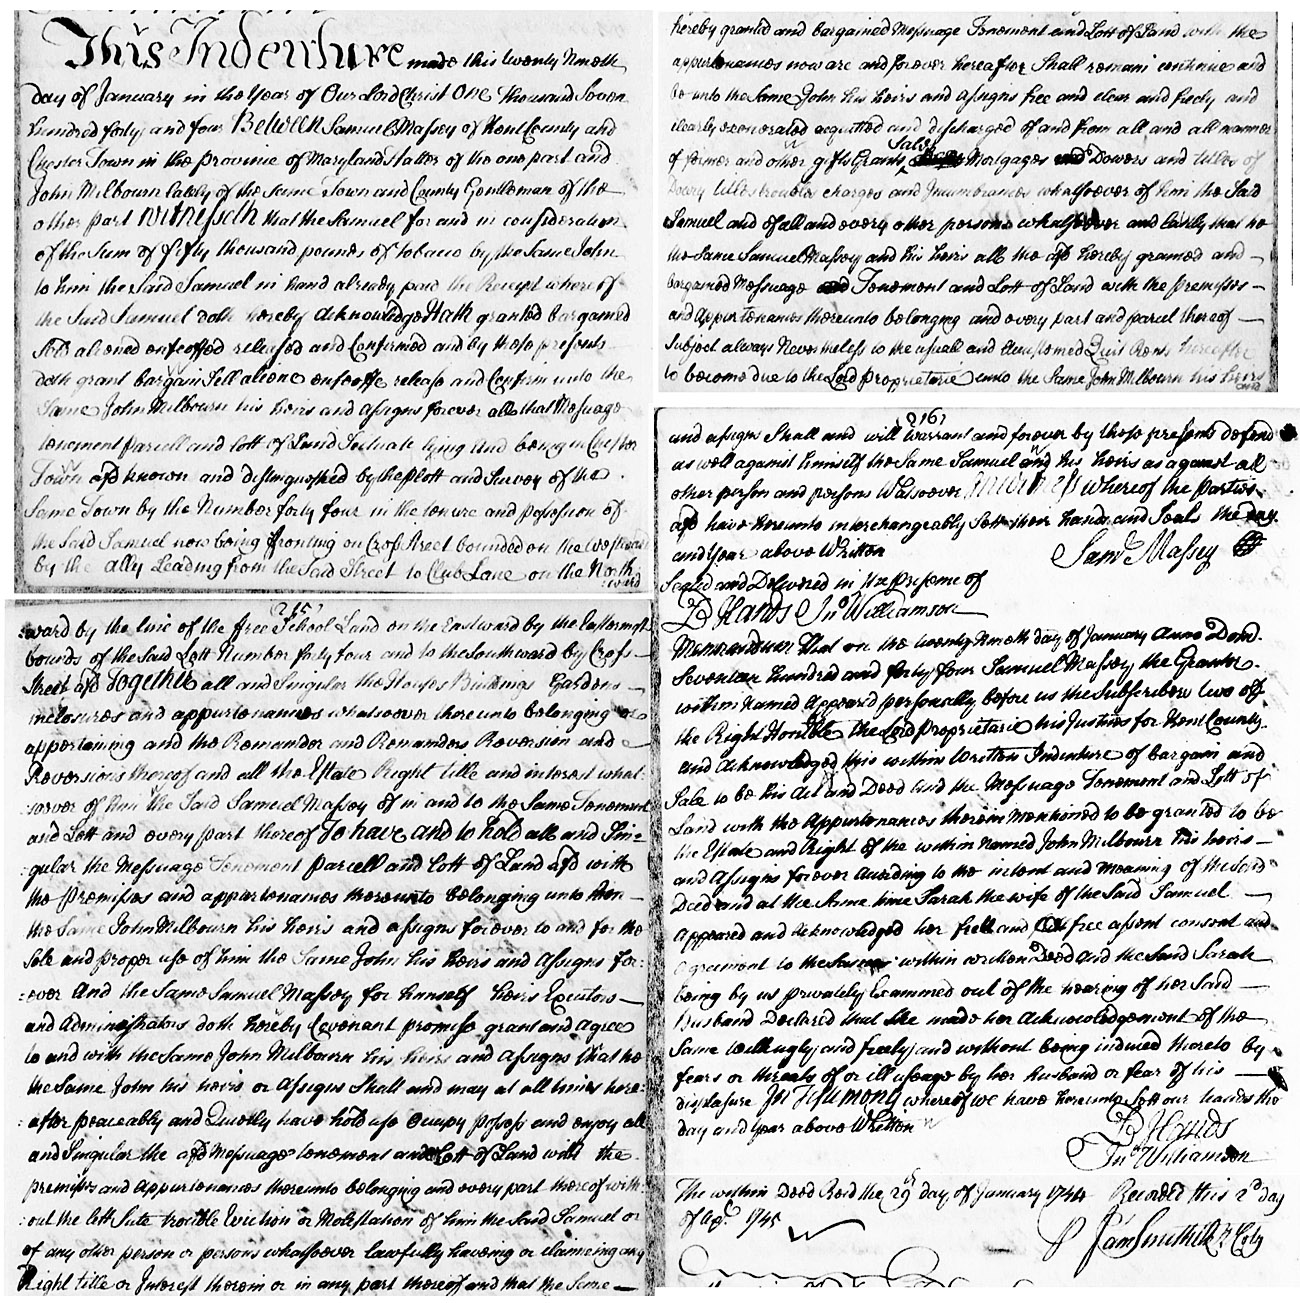 This Indenture made this twenty Nineth
day of January in the Year of Our Lord Christ One thousand Seven
hundred forty and four Between Samuel Massey of Kent County and
Chester Town in the province of Maryland Hatter of the one part and
John Milbourn Lately of the Same Town and County Gentleman of the
other part Witnesseth that the Samuel for and in consideration
of the Sum of fifty thousand pounds of tobacco by the Same John
to him the Said Samuel in hand already paid the Receipt whereof
the Said Samuel doth hereby acknowledge Hath granted bargained
Sold aliened enfeoffed released and Confirmed and by these presents
doth grant bargain Sell aliene enfeoffe release and Confirm unto the
Same John Milbourn his heirs and assigns forever all that Messuage
tenement parcell and Lott of Land Scituate lying and being in Chester
Town afd known and distinguished by the plott and Survey of the
Same Town by the Number forty four in the tenure and possession of
the Said Samuel now being fronting on Cross Street bounded on the Westward
by the ally Leading from the Said Street to Club Lane on the North
:ward
215
:ward by the line of the free School Land on the Eastward by the Eastermost
bounds of the Said Lott Number forty four and to the Southward by Cross
Street afd Together all and Singular the Houses Buildings Gardens
inclosures and appurtenances whatsoever thereunto belonging or
appertaining and the Remainder and Remainders Reversion and
Reversions thereof and all the Estate Right title and interest what:
:soever of him the Said Samuel Massey of in and to the Same Tenement
and Lott and every part thereof To have and to hold all and Sin:
:gular the Messuage Tenement parcell and Lott of Land afd with
the premisses and appurtenances thereunto belonging unto him
the Same John Milbourn his heirs and assigns forever to and for the
Sole and proper use of him the Same John his heirs and Assigns for:
:ever And the Same Samuel Massey for himself heirs Executors
and Administrators doth hereby Covenant promise grant and agree
to and with the Same John Milbourn his heirs and Assigns that he
the Same John his heirs or Assigns Shall and may at all times here:
:after peaceably and Quietly have hold use Occupy possess and enjoy all
and Singular the afd Messuage tenement and Lott of Land with the
premisses and Appurtenances thereunto belonging and every part thereof with:
:out the lett Sute trouble Eviction or Molestation of him the Said Samuel or
of any other person or persons whatsoever lawfully haveing or claimeing any
Right title or Interest therein or in any part thereof and that the Same
hereby granted and bargained Messuage Tenement and Lott of Land with the
appurtenances now are and forever hereafter Shall remain continue and
be unto the Same John his heirs and assigns free and clear and freely and
clearly exonerated acquitted and discharged of and from all and all manner
of former and other gifts Grants Sales Mortgages Dowers and titles of
Dowry titles troubles charges and Incumbrances whatsoever of him the Said
Samuel and of all and every other persons whatsoever and Lastly that he
the Same Samuel Massey and his heirs all the afd hereby granted and
bargained Messuage Tenement and Lott of Land with the premisses
and Appurtenances thereunto belonging and every part and parcel thereof
Subject always Nevertheless to the usuall and Accustomed Quit Rents hereafter
to become due to the Lord proprietarie unto the Same John Milbourn his heirs
216
and assigns Shall and will Warrant and forever by these presents defend
as well against himself the Same Samuel and his heirs as against all
other person and persons Watsoever In witness whereof the parties
afd have hereunto interchangeably Sett their hands and Seals the day
and year above Written
Saml Massey
Sealed and Delivered in the presence of
B Hands Jno Williamson
Memorandum that on the twenty Nineth day of January Anno Domi
Seventeen hundred and forty four Samuel Massey the Grantor
within Named Appeard personally before us the Subscribers two of
the Right Honble the Lord Proprietarie his Justices for Kent County
and Acknowledged this within Written Indenture of bargain and
Sale to be his Act and Deed and the Messuage Tenement and Lott of
Land with the Appurtenances therein mentioned to be granted to be
the Estate and Right of the within Named John Milbourn his heirs
and Assigns forever according to the intent and meaning of the Said
Deed and at the Same time Sarah the wife of the Said Samuel
Appeared and Acknowledged her full and free assent consent and
Agreement to the within written Deed and the Said Sarah
being by us privately Examined out of the hearing of her Said
Husband Declared that She made her Acknowledgement of the
Same willingly and freely and without being induced thereto by
fears or threats of or ill useage by her husband or fear of his
displasure In Testimony whereof we have hereunto Sett our hands the
day and year above Written
B Hands
Jno Williamson
The within Deed Recd the 29th day of January 1744 Recorded this 2d day
of Apl 1745
P Jam Smith Clk Coty